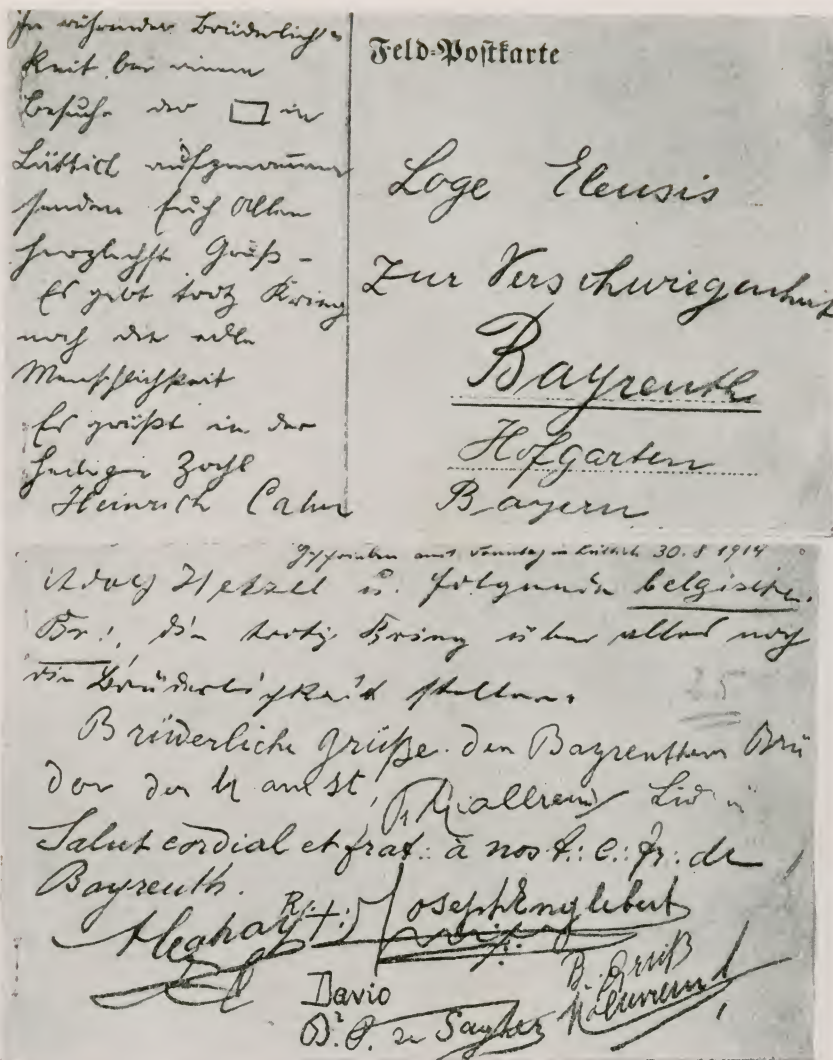 In rührender Brüderlich-
keit bei einem
Besuche der in
Lüttich aufgenommen
senden Euch Allen
herzlichste Grüße -
Es gibt trotz Krieg
noch die edle
Menschlichkeit
Es grüßt in der
heiligen Zahl
Heinrich Cahn
Feld-Postkarte
Loge Eleusis
Zur Verschwiegenheit
Bayreuth
Hofgarten
Bayern
Geschrieben am Sonntag in Lüttich 30.8 1914
Adolf Hetzel u. folgende belgische
Br∴, die trotz Krieg über alles noch
die Brüderlichkeit stellen.
25
Brüderliche Grüße den Bayreuthern Brü
der der
Salut cordial et frat∴ à nos t∴ c∴ fr∴ de
Bayreuth.
Joseph Englebert
David
B. Gruß
Dr P. de